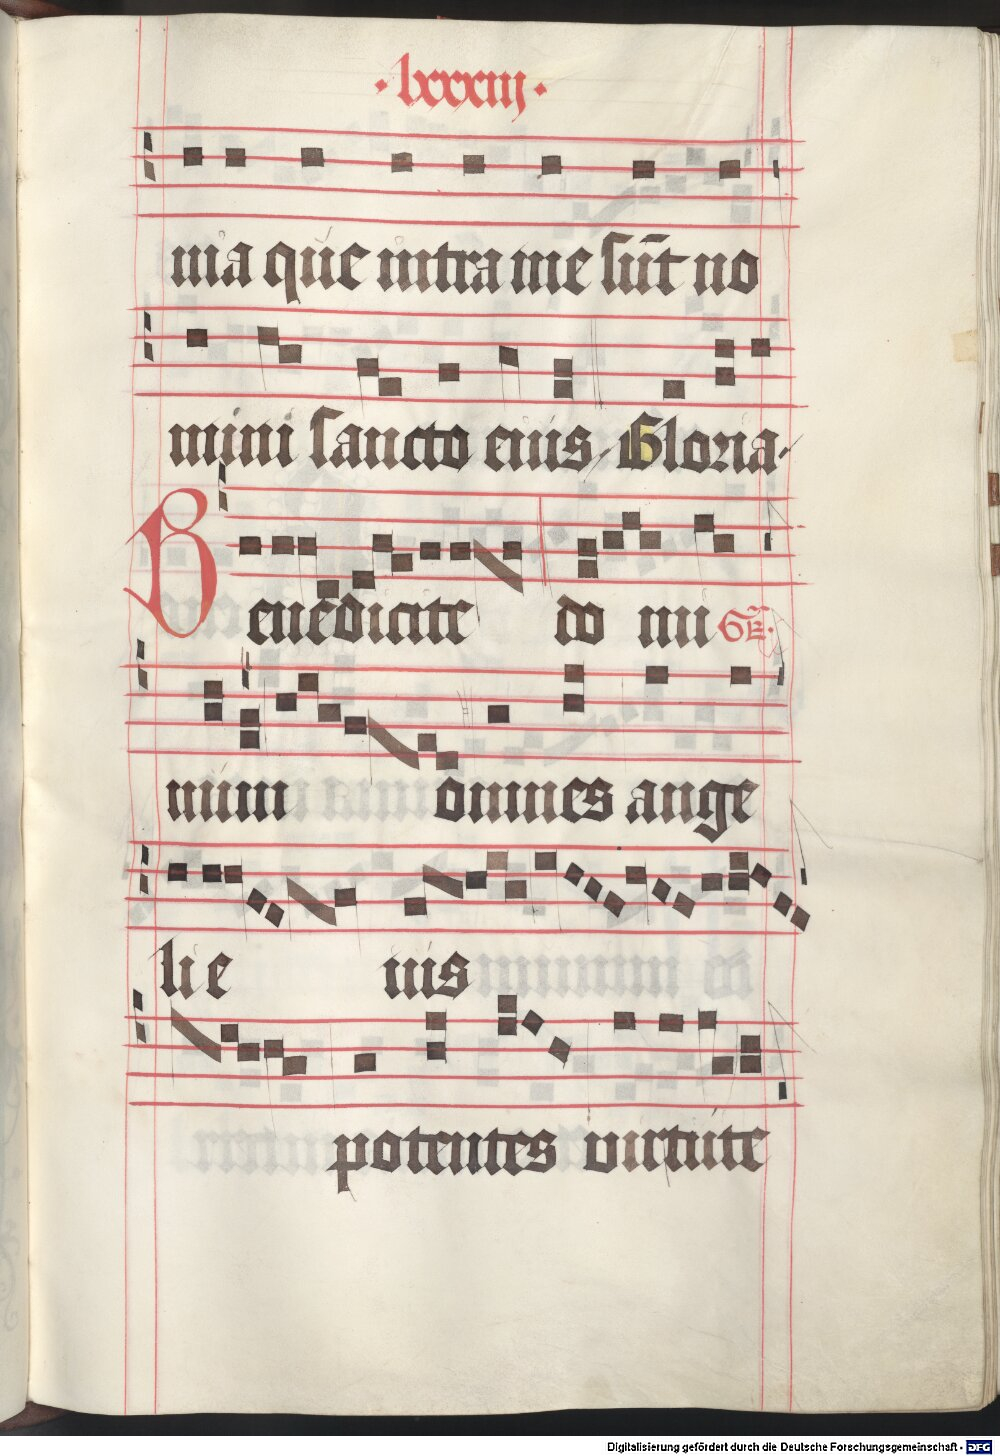 · lxxxiij ·
nia que intra me sūt no
mini sancto eius. Gloria.
Benedicite do mi Gr̄.
num omnes ange
li e ius
potentes virtute
Digitalisierung gefördert durch die Deutsche Forschungsgemeinschaft - DFG